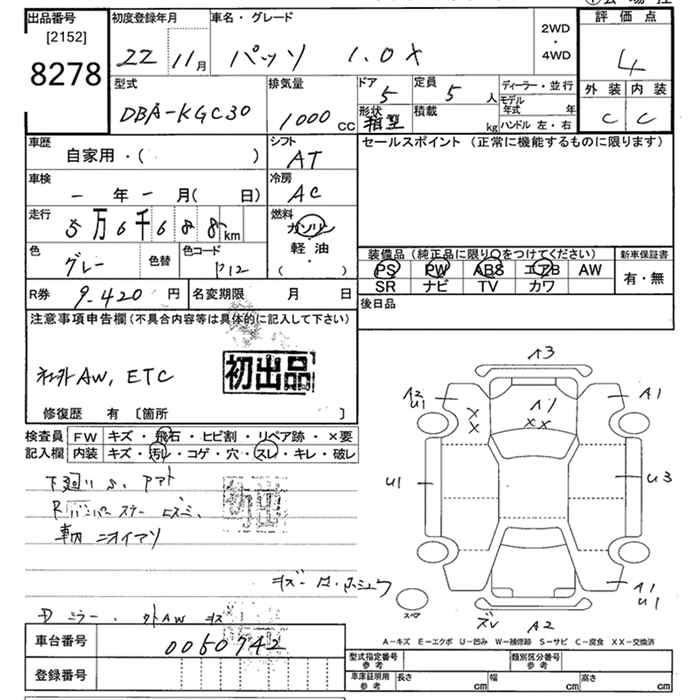 出品番号
[2152]
8278
初度登録年月
22 11月
車名・グレード
パッソ 1.0X
2WD
・
4WD
評価点
4
外装 内装
C C
型式
DBA-KGC30
排気量
1000 CC
ドア
5
形状
箱型
定員
5 人
積載
kg
ディーラー・並行
モデル
年式 年
ハンドル 左・右
車歴
自家用・( )
シフト
AT
車検
- 年 - 月( 日)
冷房
AC
走行
5万6千688km
燃料
ガソリン
・
軽・油
・
( )
色
グレー
色替
色コード
P12
R券 9-420 円
名変期限 月 日
セールスポイント(正常に機能するものに限ります)
装備品(純正品に限り○をつけてください)
PS PW ABS エアB AW
SR ナビ TV カワ
新車保証書
有・無
後日品
注意事項申告欄(不具合内容等は具体的に記入して下さい)
社外AW, ETC
初出品
修復歴 有 〔箇所 〕
検査員
記入欄
FW キズ・飛石・ヒビ割・リペア跡・×要
内装 キズ・汚レ・コゲ・穴・スレ・キレ・破レ
下廻り S、アサト
車内 ニオイアリ
ミラー、 AW キズ
A3
A2
U1
A1
A1
XX
U1
U3
A1
U1
A2
スペア
A-キズ E-エクボ U-凹み W-補修跡 S-サビ C-腐食 XX-交換済
車台番号
0050742
登録番号
型式指定番号
参考
類別区分番号
参考
車庫証明用
参考
長さ cm
幅 cm
高さ cm